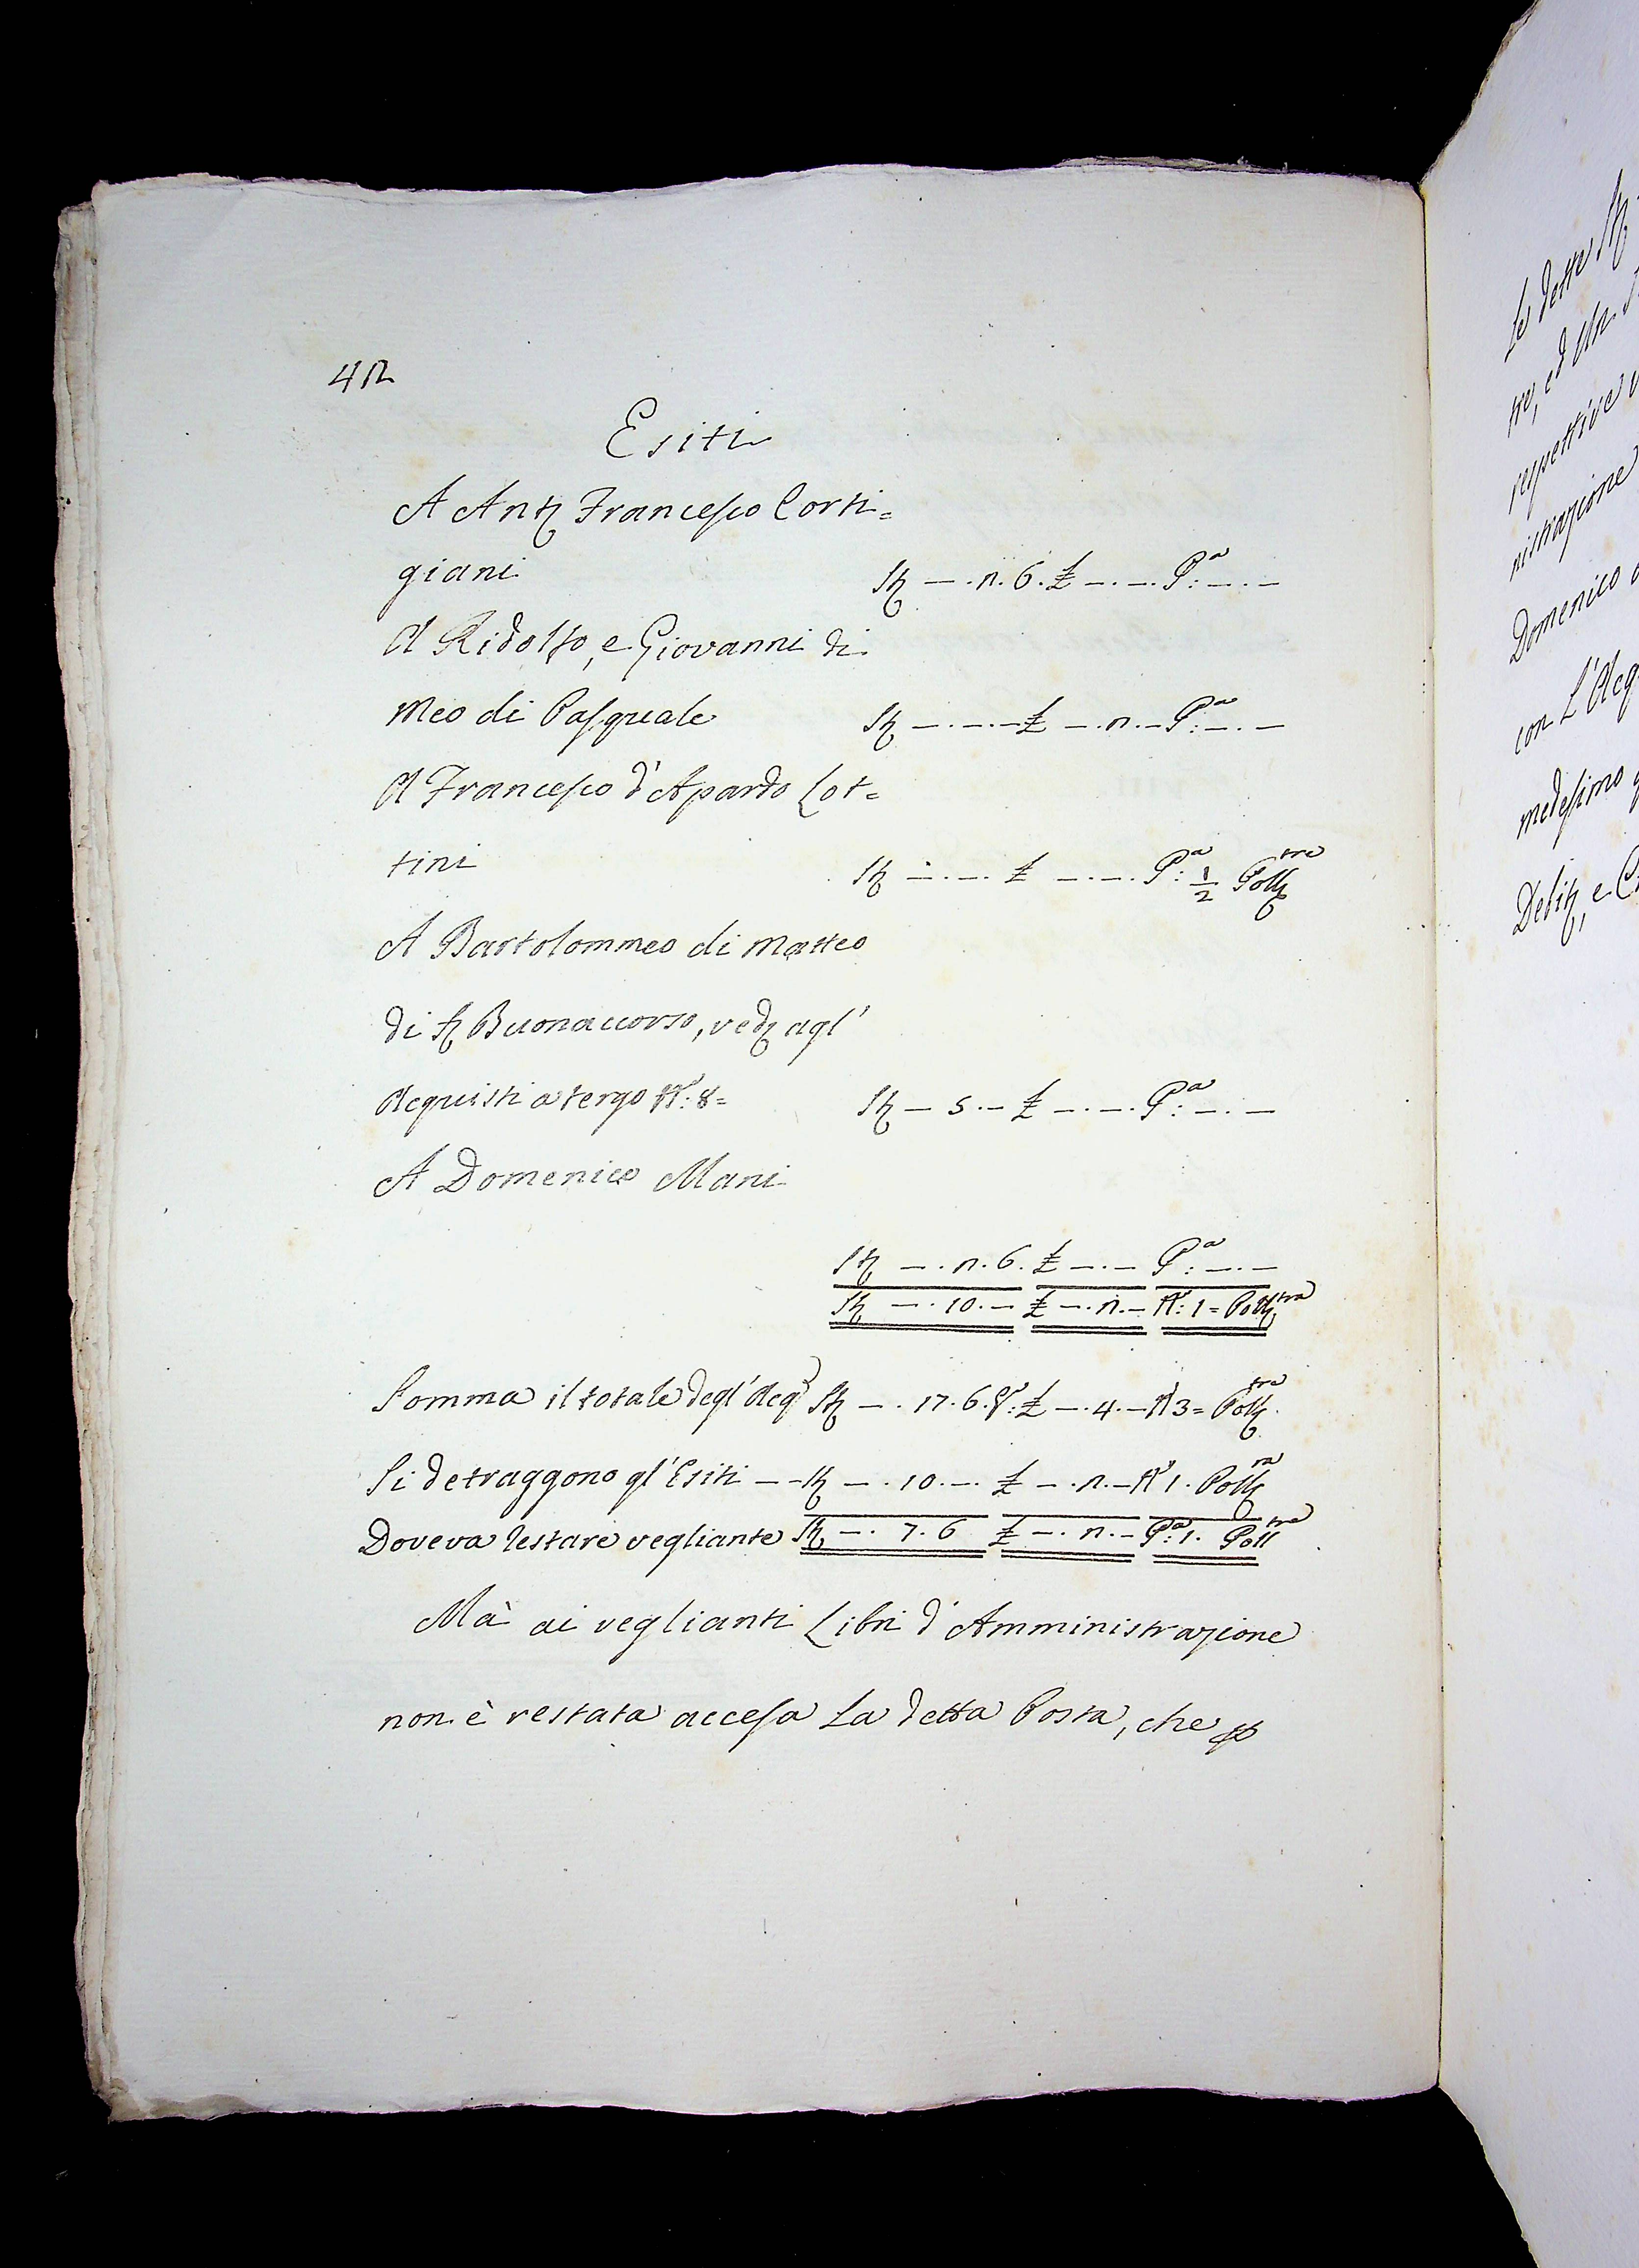 42
Esiti
A Ant Francesco Corti=
giani St — . 2. 6. £ — . — . P.ª: — . —
A Ridolfo, e Giovanni di
Meo di Pasquale St — . — . — £ — . 2. — P.ª: — . —
A Francesco d'Apardo Lot=
tini St — . — . £ — . — . P.ª: 1/2 Poll tre
A Bartolommeo di Matteo
di Buonaccorso, ved agl'
Acquisti a tergo N: 8=
St — 5 . — £ — . — . P.ª: — . —
A Domenico Mani
St — . 2. 6. £ — . — P.ª: — . —
St — . 10. — £ — . 2. — N: 1 = Poll tra
Somma il totale degl'Acq St — . 17. 6. £ — . 4. — N 3 = Poll tre
Si detraggono gl'Esiti — — St — . 10. — . £ — . 2. — N 1. Poll ra
Doveva restare vegliante St — . 7. 6 £ — . 2. — P.ª: 1. Poll tra
Mà ai veglianti Libri d'Amministrazione
non è restata accesa La detta Posta, che
Le dette St
tre, ed
respettive
nistrazione
Domenico
con L'Acq
medesimo
Debit, e